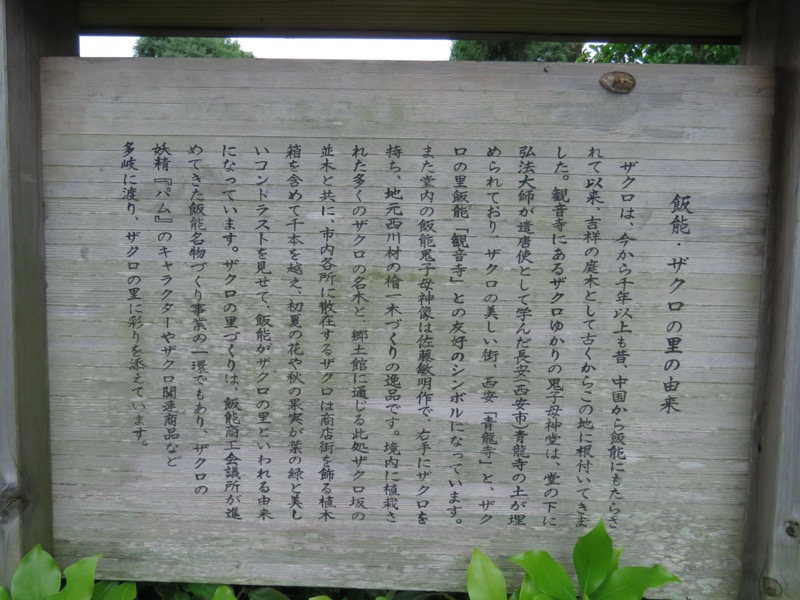 飯能・ザクロの里の由来
ザクロは、今から千年以上も昔、中国から飯能にもたらさ
れて以来、吉祥の庭木として古くからこの地に根付いてきま
した。観音寺にあるザクロゆかりの鬼子母神堂は、堂の下に
弘法大師が遣唐使として学んだ長安(西安市)青龍寺の土が埋
められており、ザクロの美しい街、西安「青龍寺」と、ザク
ロの里飯能「観音寺」との友好のシンボルになっています。
また堂内の飯能鬼子母神像は佐藤敏明作で、右手にザクロを
持ち、地元西川村の檜一木づくりの逸品です。境内に植栽さ
れた多くのザクロの名木と、郷土館に通じる此処ザクロ坂の
並木と共に、市内各所に散在するザクロは商店街を飾る植木
箱を含めて千本を越え、初夏の花や秋の果実が葉の緑と美し
いコントラストを見せて、飯能がザクロの里といわれる由来
になっています。ザクロの里づくりは、飯能商工会議所が進
めてきた飯能名物づくり事業の一環でもあり、ザクロの
妖精『パム』のキャラクターやザクロ関連商品など
多岐に渡り、ザクロの里に彩りを添えています。